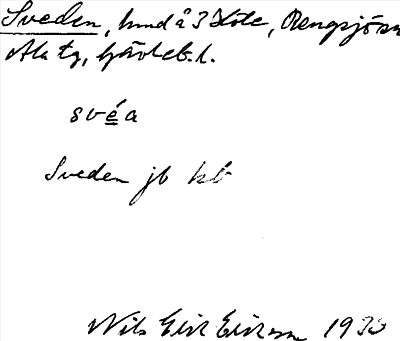 Sveden, hmd å 3 Höle, Rengsjö sn
Ala tg, Gävleb. l.
svéa
Sveden jb kb
Nils Eric Ericson 1930